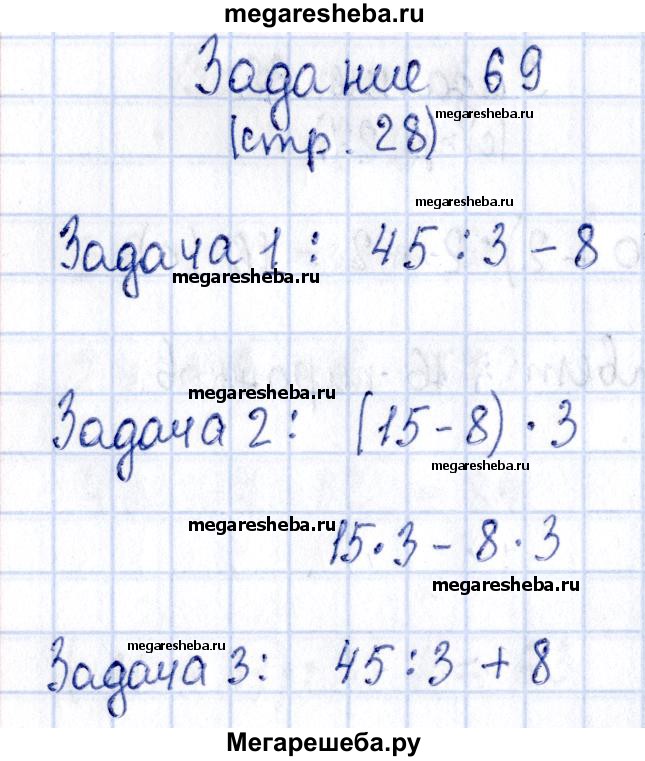 megaresheba.ru
Задание 69
megaresheba.ru
(стр. 28)
megaresheba.ru
Задача 1: 45:3-8
megaresheba.ru
megaresheba.ru
Задача 2: (15-8)·3
megaresheba.ru
megaresheba.ru
15·3-8·3
megaresheba.ru
megaresheba.ru
Задача 3: 45:3+8
Мегарешеба.ру